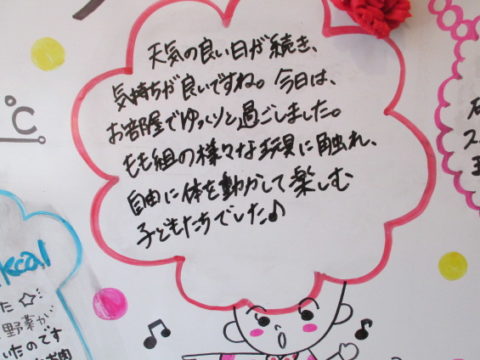 天気の良い日が続き、
気持ちが良いですね。今日は、
お部屋でゆっくりと過ごしました。
もも組の様々な玩具に触れ、
自由に体を動かして楽しむ
子どもたちでした♪
℃
kcal
た☆
野菜が
いたのです